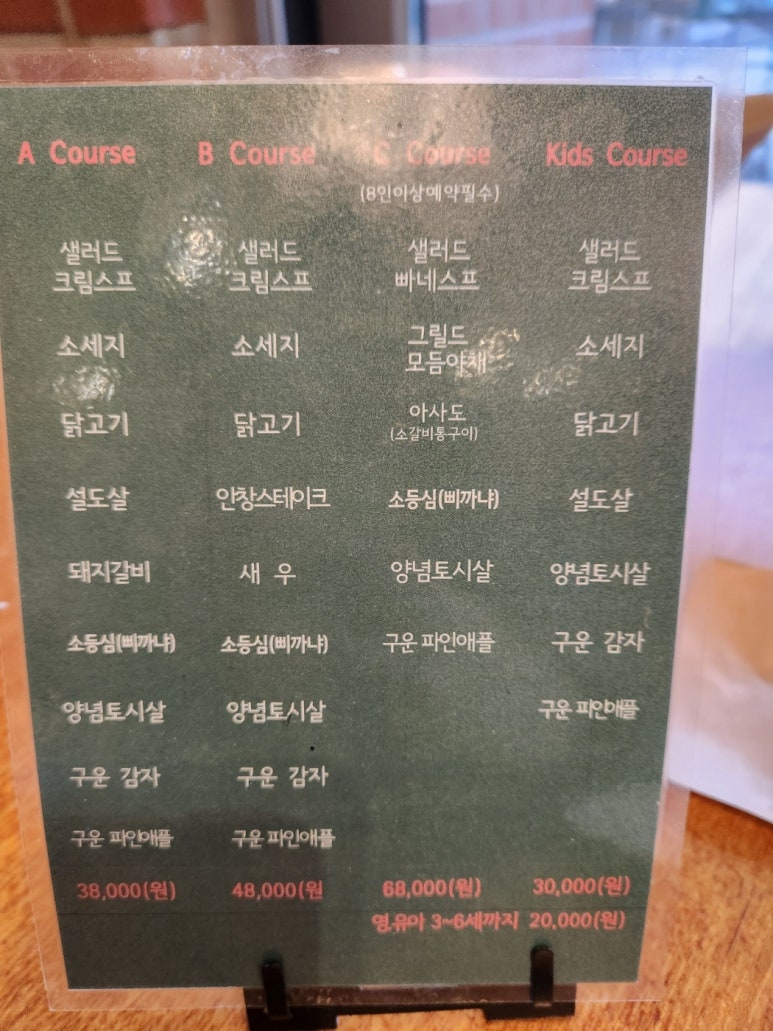 A Course
샐러드
크림스프
소세지
닭고기
설도살
돼지갈비
소등심(삐까냐)
양념토시살
구운 감자
구운 파인애플
38,000(원)
B Course
샐러드
크림스프
소세지
닭고기
안창스테이크
새 우
소등심(삐까냐)
양념토시살
구운 감자
구운 파인애플
48,000(원
C Course
(8인이상예약필수)
샐러드
빠네스프
그릴드
모듬야채
아사도
(소갈비통구이)
소등심(삐까냐)
양념토시살
구운 파인애플
68,000(원)
Kids Course
샐러드
크림스프
소세지
닭고기
설도살
양념토시살
구운 감자
구운 파인애플
30,000(원)
영.유아 3~6세까지 20,000(원)